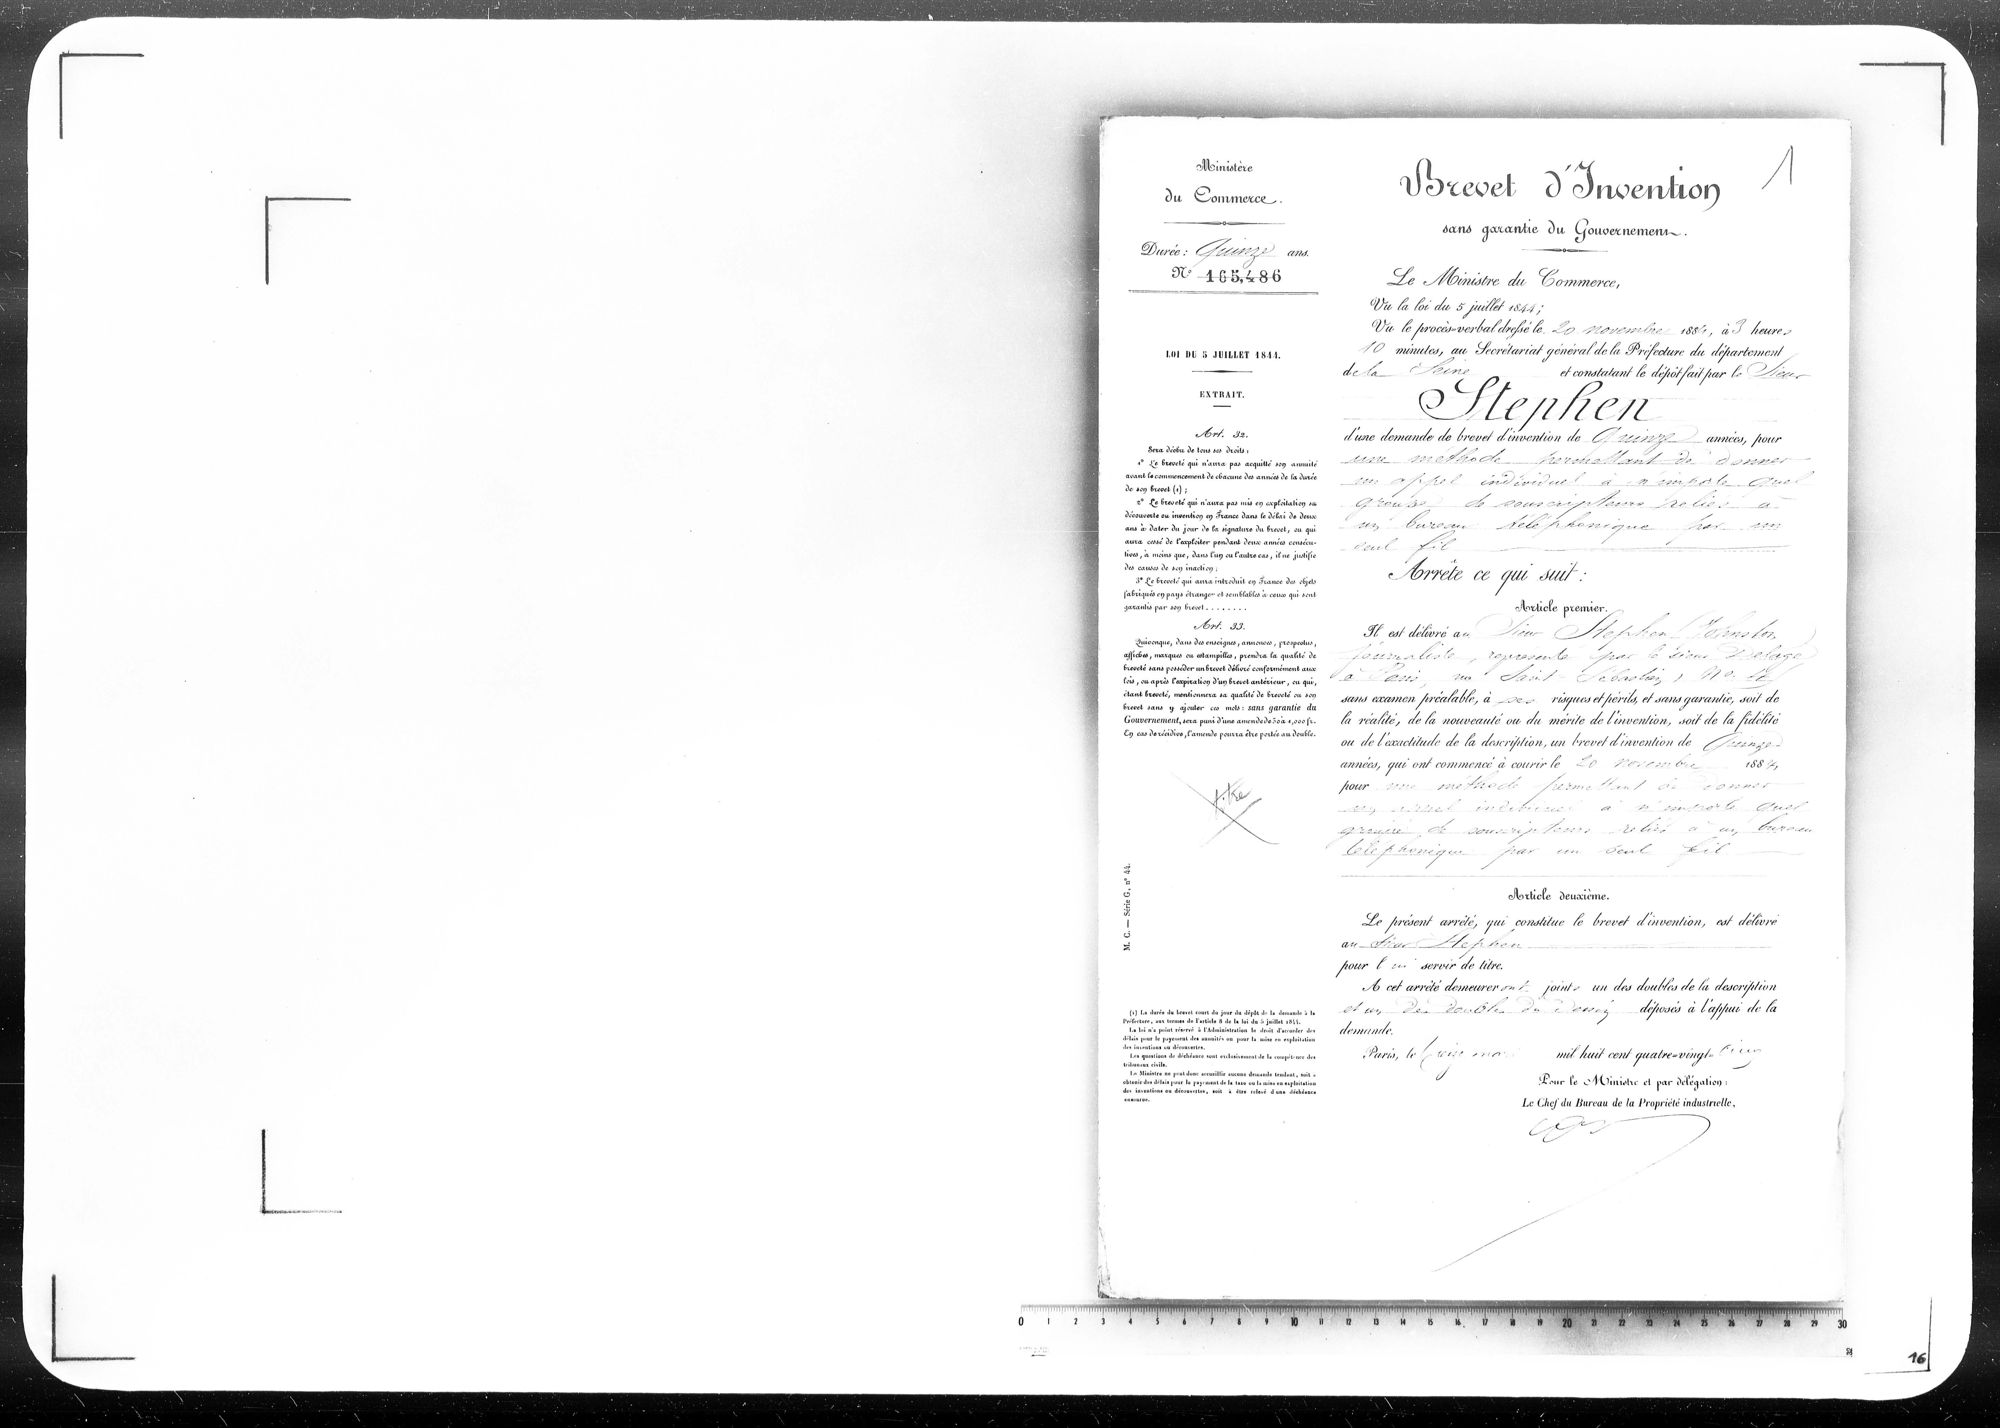 Ministère
du Commerce.
Durée : Quinze ans.
N° 165,486
LOI DU 5 JUILLET 1844.
EXTRAIT.
Art. 32.
Sera déchu de tous ses droits :
1° Le breveté qui n'aura pas acquitté son annuité
avant le commencement de chacune des années de la durée
de son brevet (1) ;
2° Le breveté qui n'aura pas mis en exploitation sa
découverte ou invention en France dans le délai de deux
ans à dater du jour de la signature du brevet, ou qui
aura cessé de l'exploiter pendant deux années consécu-
tives, à moins que, dans l'un ou l'autre cas, il ne justifie
des causes de son inaction ;
3° Le breveté qui aura introduit en France des objets
fabriqués en pays étranger et semblables à ceux qui sont
garantis par son brevet........
Art. 33.
Quiconque, dans des enseignes, annonces, prospectus,
affiches, marques ou estampilles, prendra la qualité de
breveté sans posséder un brevet délivré conformément aux
lois, ou après l'expiration d'un brevet antérieur, ou qui,
étant breveté, mentionnera sa qualité de breveté ou son
brevet sans y ajouter ces mots : sans garantie du
Gouvernement, sera puni d'une amende de 50 à 1,000 fr.
En cas de récidive, l'amende pourra être portée au double.
M. C. — Série G, n° 44.
(1) La durée du brevet court du jour du dépôt de la demande à la
Préfecture, aux termes de l'article 8 de la loi du 5 juillet 1844.
La loi n'a point réservé à l'Administration le droit d'accorder des
délais pour le payement des annuités ou pour la mise en exploitation
des inventions ou découvertes.
Les questions de déchéance sont exclusivement de la compétence des
tribunaux civils.
Le Ministre ne peut donc accueillir aucune demande tendant, soit à
obtenir des délais pour le payement de la taxe ou la mise en exploitation
des inventions ou découvertes, soit à être relevé d'une déchéance
encourue.
1
Brevet d'Invention
sans garantie du Gouvernement.
Le Ministre du Commerce,
Vu la loi du 5 juillet 1844 ;
Vu le procès-verbal dressé le 20 novembre 1884, à 3 heures
10 minutes, au Secrétariat général de la Préfecture du département
de la Seine et constatant le dépôt fait par le Sieur
Stephen
d'une demande de brevet d'invention de Quinze années, pour
une méthode permettant de donner
un appel individuel à n'importe quel
groupe de souscripteurs reliés à
un bureau téléphonique par un
seul fil
Arrête ce qui suit :
Article premier.
Il est délivré au Sieur Stephen (Johnston)
journaliste, représenté par le sieur
à Paris, rue Saint-Sébastien, No.
sans examen préalable, à ses risques et périls, et sans garantie, soit de
la réalité, de la nouveauté ou du mérite de l'invention, soit de la fidélité
ou de l'exactitude de la description, un brevet d'invention de Quinze
années, qui ont commencé à courir le 20 novembre 1884,
pour une méthode permettant de donner
un appel individuel à n'importe quel
groupe de souscripteurs reliés à un bureau
téléphonique par un seul fil
Article deuxième.
Le présent arrêté, qui constitue le brevet d'invention, est délivré
au Sieur Stephen
pour lui servir de titre.
A cet arrêté demeureront joints un des doubles de la description
et un des doubles du dessin déposés à l'appui de la
demande.
Paris, le mars mil huit cent quatre-vingt-cinq
Pour le Ministre et par délégation :
Le Chef du Bureau de la Propriété industrielle,
0 1 2 3 4 5 6 7 8 9 10 11 12 13 14 15 16 17 18 19 20 21 22 23 24 25 26 27 28 29 30
16